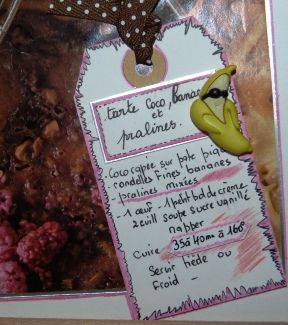 tarte coco, banane
et
pralines.
Coco rapée sur pate
- rondelles Fines bananes
- pralines mixées -
- 1 œuf - 1 petit bol de creme
2 cuill soupe sucre vanillé
napper
Cuire 35 à 40mn à 160°
Servir tiède ou
Froid -